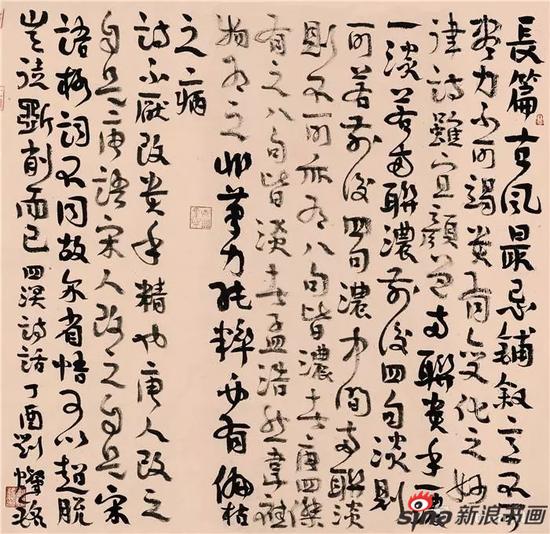 長篇古風最忌鋪敘意不可
盡力不可竭貴有變化之妙
律詩雖宜顏色兩聯貴乎一濃
一淡若兩聯濃前後四句淡則
可若前後四句濃中間兩聯淡
則不可亦有八句皆濃者唐四傑
有之八句皆淡者孟浩然韋應
物有之非筆力純粹必有偏枯
之病
詩不厭改貴乎精也唐人改之
自是唐語宋人改之自是宋
語格詞不同故爾省悟可以超脫
豈徒斲削而已 四溟詩話 丁酉劉燦銘
sina 新浪书画